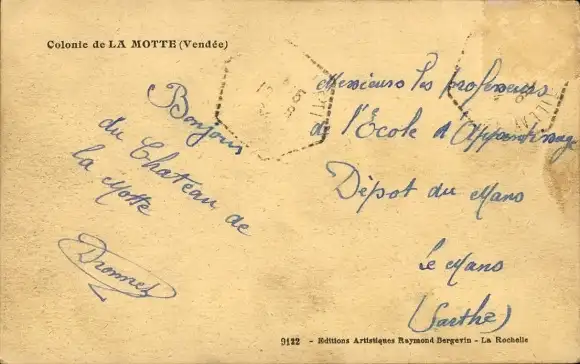 Colonie de LA MOTTE (Vendée)
Bonjour
du Chateau de
la Motte
Messieurs les professeurs
de l'École d'Apprentissage
Dépot du Mans
Le Mans
(Sarthe)
9122 - Editions Artistiques Raymond Bergevin - La Rochelle